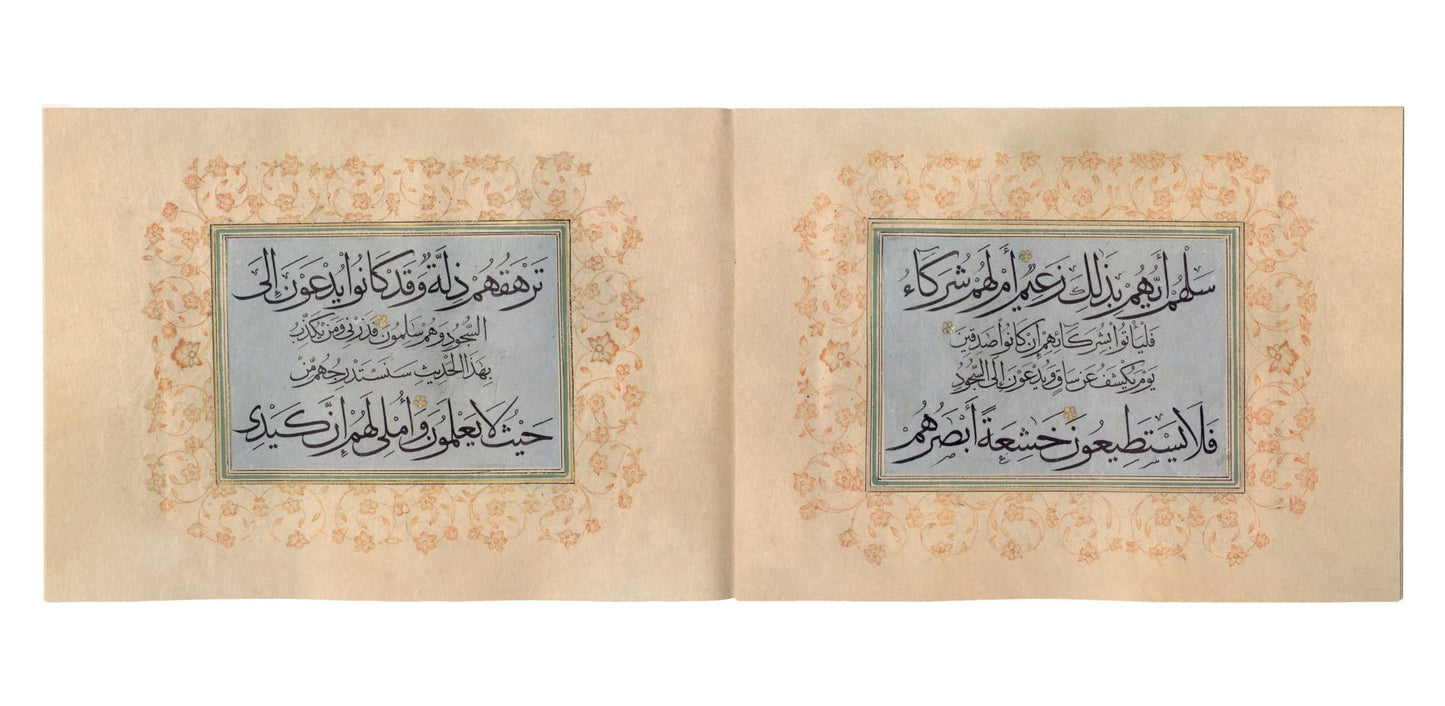 سَلْهُمْ أَيُّهُمْ بِذَٰلِكَ زَعِيمٌ أَمْ لَهُمْ شُرَكَاءُ
فَلْيَأْتُوا بِشُرَكَائِهِمْ إِنْ كَانُوا صَٰدِقِينَ
يَوْمَ يُكْشَفُ عَنْ سَاقٍ وَيُدْعَوْنَ إِلَى السُّجُودِ
فَلَا يَسْتَطِيعُونَ خَٰشِعَةً أَبْصَٰرُهُمْ
تَرْهَقُهُمْ ذِلَّةٌ وَقَدْ كَانُوا يُدْعَوْنَ إِلَى
السُّجُودِ وَهُمْ سَٰلِمُونَ فَذَرْنِي وَمَنْ يُكَذِّبُ
بِهَٰذَا الْحَدِيثِ سَنَسْتَدْرِجُهُمْ مِّنْ
حَيْثُ لَا يَعْلَمُونَ وَأُمْلِي لَهُمْ إِنَّ كَيْدِي